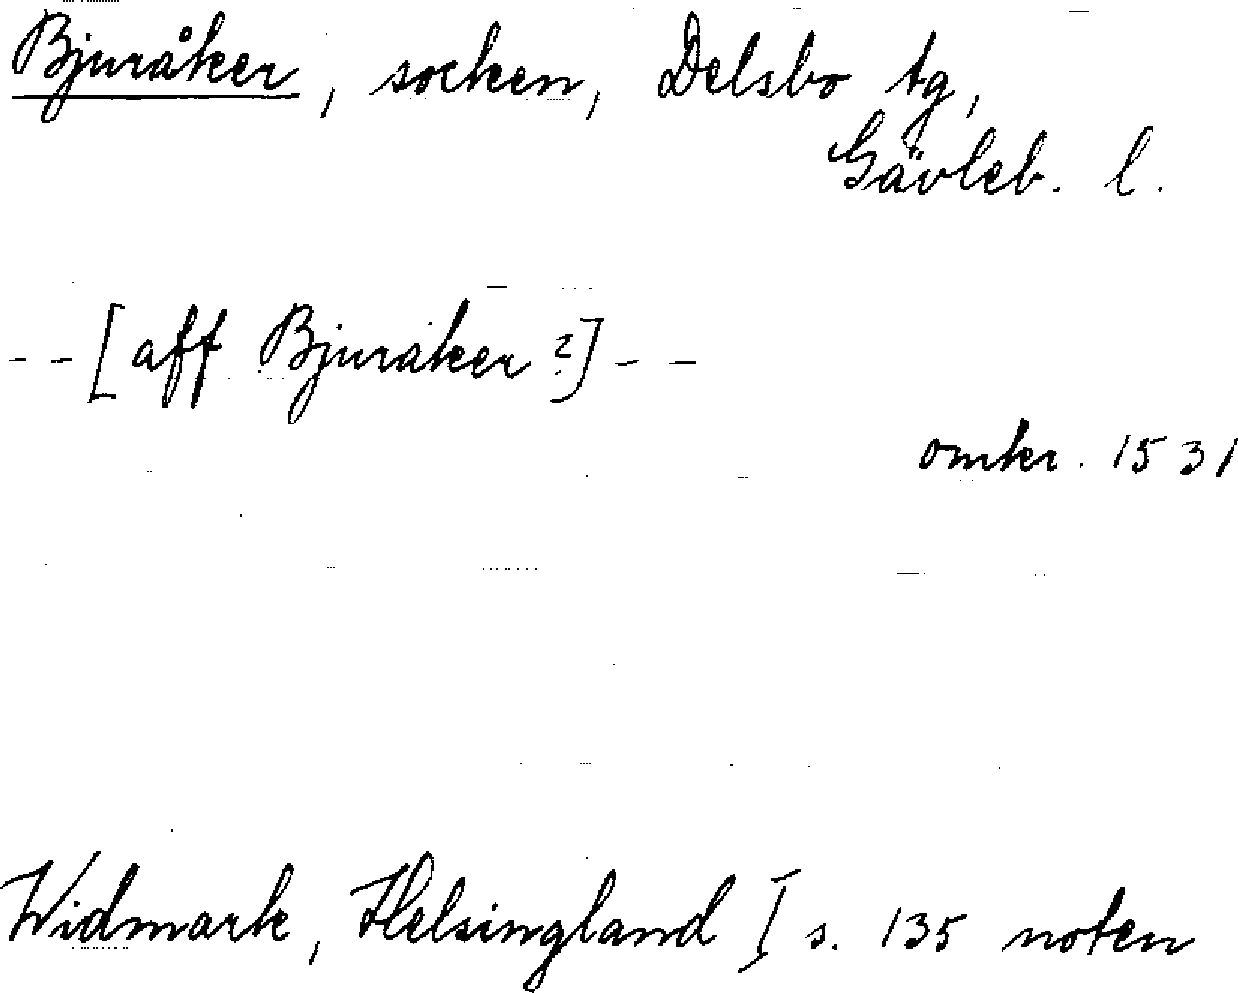 Bjuråker, socken, Delsbo tg,
Gävleb. l.
- - [aff Bjuraker ?] - -
omkr. 1531
Widmark, Helsingland I s. 135 noten